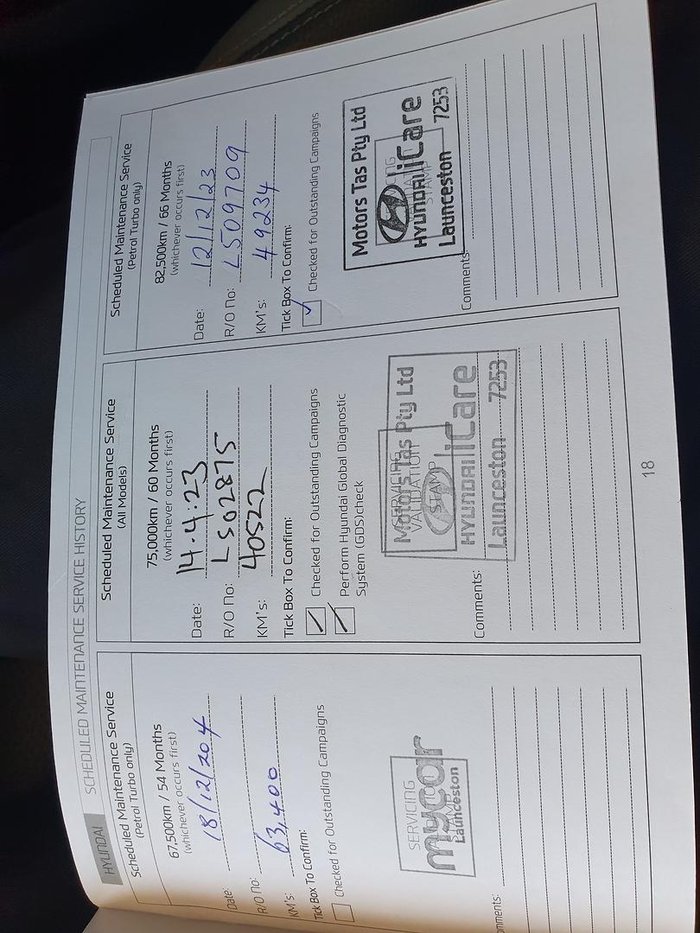 HYUNDAI
SCHEDULED MAINTENANCE SERVICE HISTORY
Scheduled Maintenance Service
(Petrol Turbo only)
67,500km / 54 Months
(whichever occurs first)
Date: 18/12/204
R/O No:
KM's: 63,400
Tick Box To Confirm:
Checked for Outstanding Campaigns
SERVICING
mycar
Launceston
mments:
Scheduled Maintenance Service
(All Models)
75,000km / 60 Months
(whichever occurs first)
Date: 14.4:23
R/O No: LS02875
KM's: 40522
Tick Box To Confirm:
Checked for Outstanding Campaigns
Perform Hyundai Global Diagnostic
System (GDS)check
SERVICING
VALIDATION
STAMP
Motors Tas Pty Ltd
HYUNDAI iCare
Launceston 7253
Comments:
Scheduled Maintenance Service
(Petrol Turbo only)
82,500km / 66 Months
(whichever occurs first)
Date: 12/12/23
R/O No: LS09709
KM's: 49234
Tick Box To Confirm:
Checked for Outstanding Campaigns
Motors Tas Pty Ltd
STAMP
HYUNDAI iCare
Launceston 7253
Comments
18